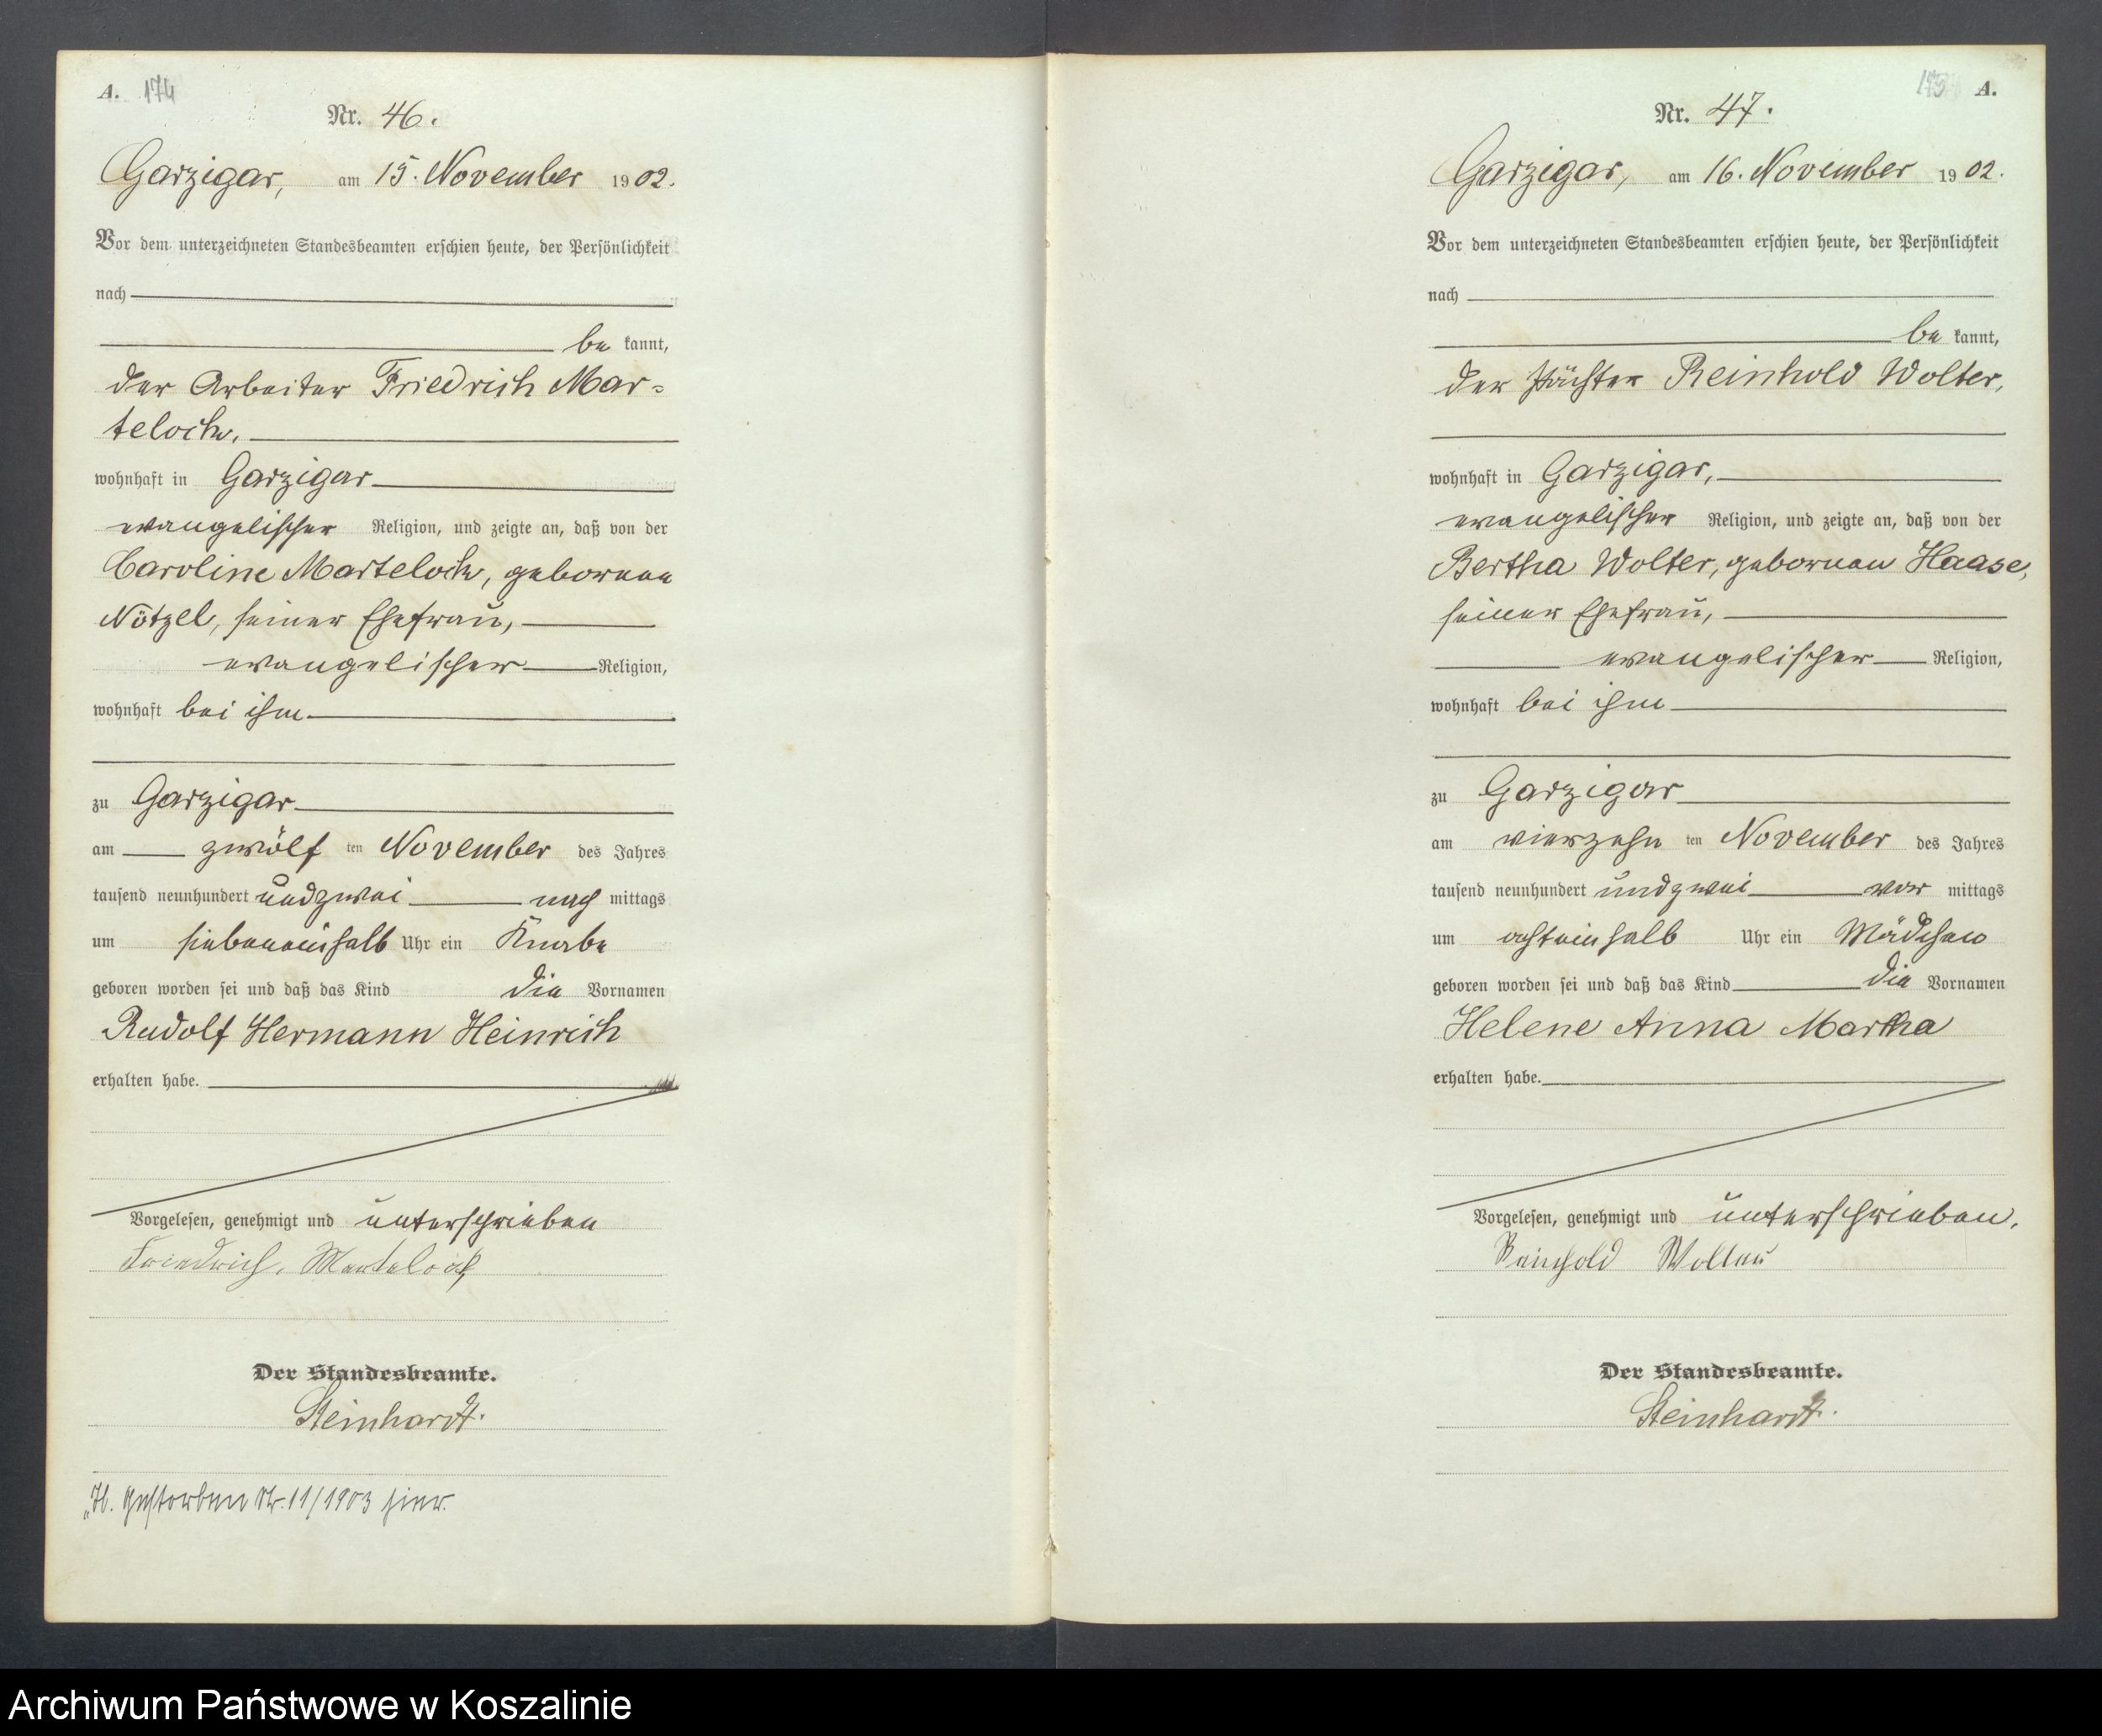 A. 174
Nr. 46.
Garzigar, am 15. November 1902.
Vor dem unterzeichneten Standesbeamten erschien heute, der Persönlichkeit
nach
be kannt,
der Arbeiter Friedrich Mar=
teloch,
wohnhaft in Garzigar
evangelischer Religion, und zeigte an, daß von der
Caroline Marteloch, geborenen
Nötzel, seiner Ehefrau,
evangelischer Religion,
wohnhaft bei ihm
zu Garzigar
am zwölf ten November des Jahres
tausend neunhundert undzwei nach mittags
um siebeneinhalb Uhr ein Knabe
geboren worden sei und daß das Kind die Vornamen
Rudolf Hermann Heinrich
erhalten habe.
Vorgelesen, genehmigt und unterschrieben
Friedrich, Marteloch
Der Standesbeamte.
Steinhardt.
gestorben Nr. 11/1903 hier.
A.
Nr. 47.
Garzigar, am 16. November 1902.
Vor dem unterzeichneten Standesbeamten erschien heute, der Persönlichkeit
nach
be kannt,
der Pächter Reinhold Wolter,
wohnhaft in Garzigar,
evangelischer Religion, und zeigte an, daß von der
Bertha Wolter, geborenen Haase,
seiner Ehefrau,
evangelischer Religion,
wohnhaft bei ihm
zu Garzigar
am vierzehn ten November des Jahres
tausend neunhundert undzwei vor mittags
um achteinhalb Uhr ein Mädchen
geboren worden sei und daß das Kind die Vornamen
Helene Anna Martha
erhalten habe.
Vorgelesen, genehmigt und unterschrieben.
Reinhold Wolter
Der Standesbeamte.
Steinhardt.
Archiwum Państwowe w Koszalinie